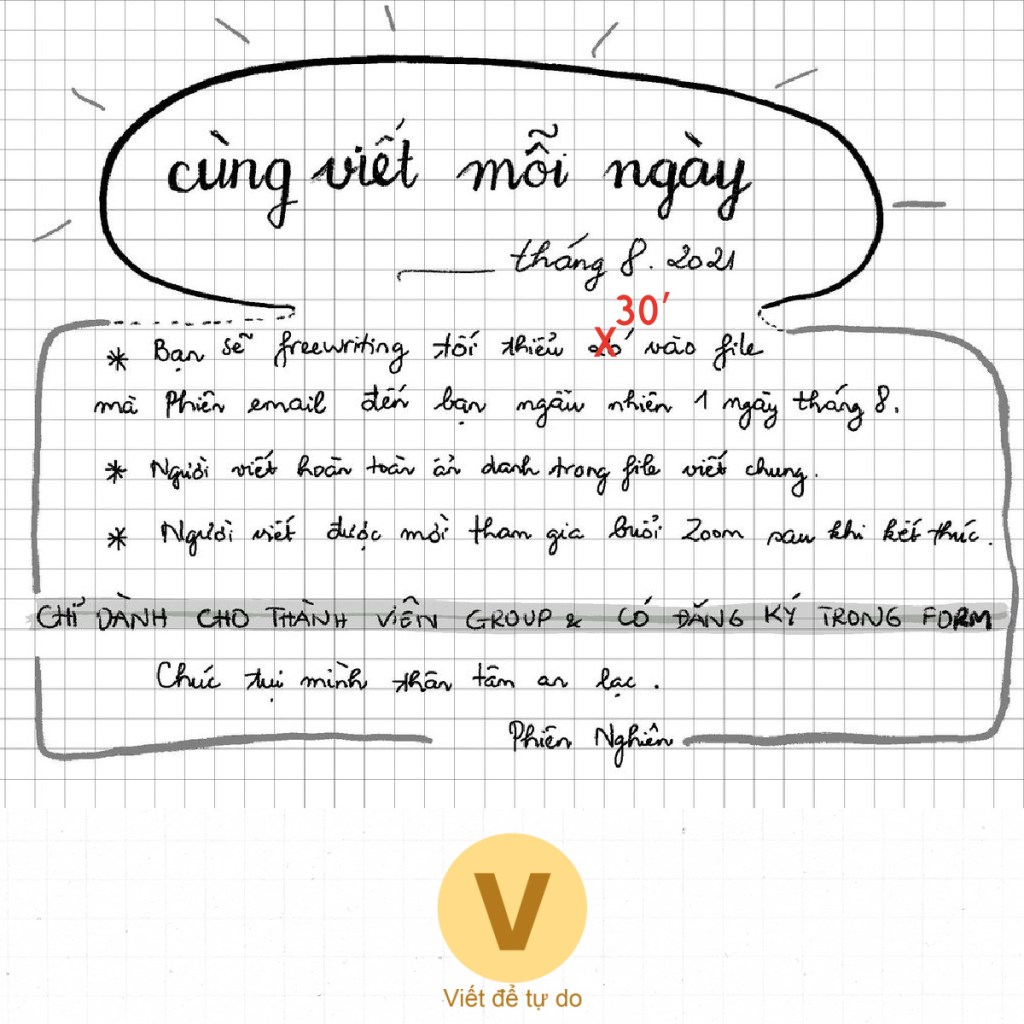 cùng viết mỗi ngày
tháng 8.2021
30'
* Bạn sẽ freewriting tối thiểu vào file
mà Phiên email đến bạn ngẫu nhiên 1 ngày tháng 8.
* Người viết hoàn toàn ẩn danh trong file viết chung.
* Người viết được mời tham gia buổi Zoom sau khi kết thúc.
CHỈ DÀNH CHO THÀNH VIÊN GROUP & CÓ ĐĂNG KÝ TRONG FORM
Chúc tụi mình thân tâm an lạc.
Phiên Nghiên
V
Viết để tự do